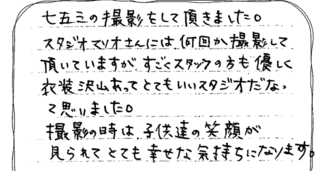 七五三の撮影をして頂きました。
スタジオマリオさんには、何回か撮影して
頂いていますが、すごくスタッフの方も優しく
衣装沢山あってとてもいいスタジオだなっ
て思いました。
撮影の時は、子供達の笑顔が
見られてとても幸せな気持ちになります。